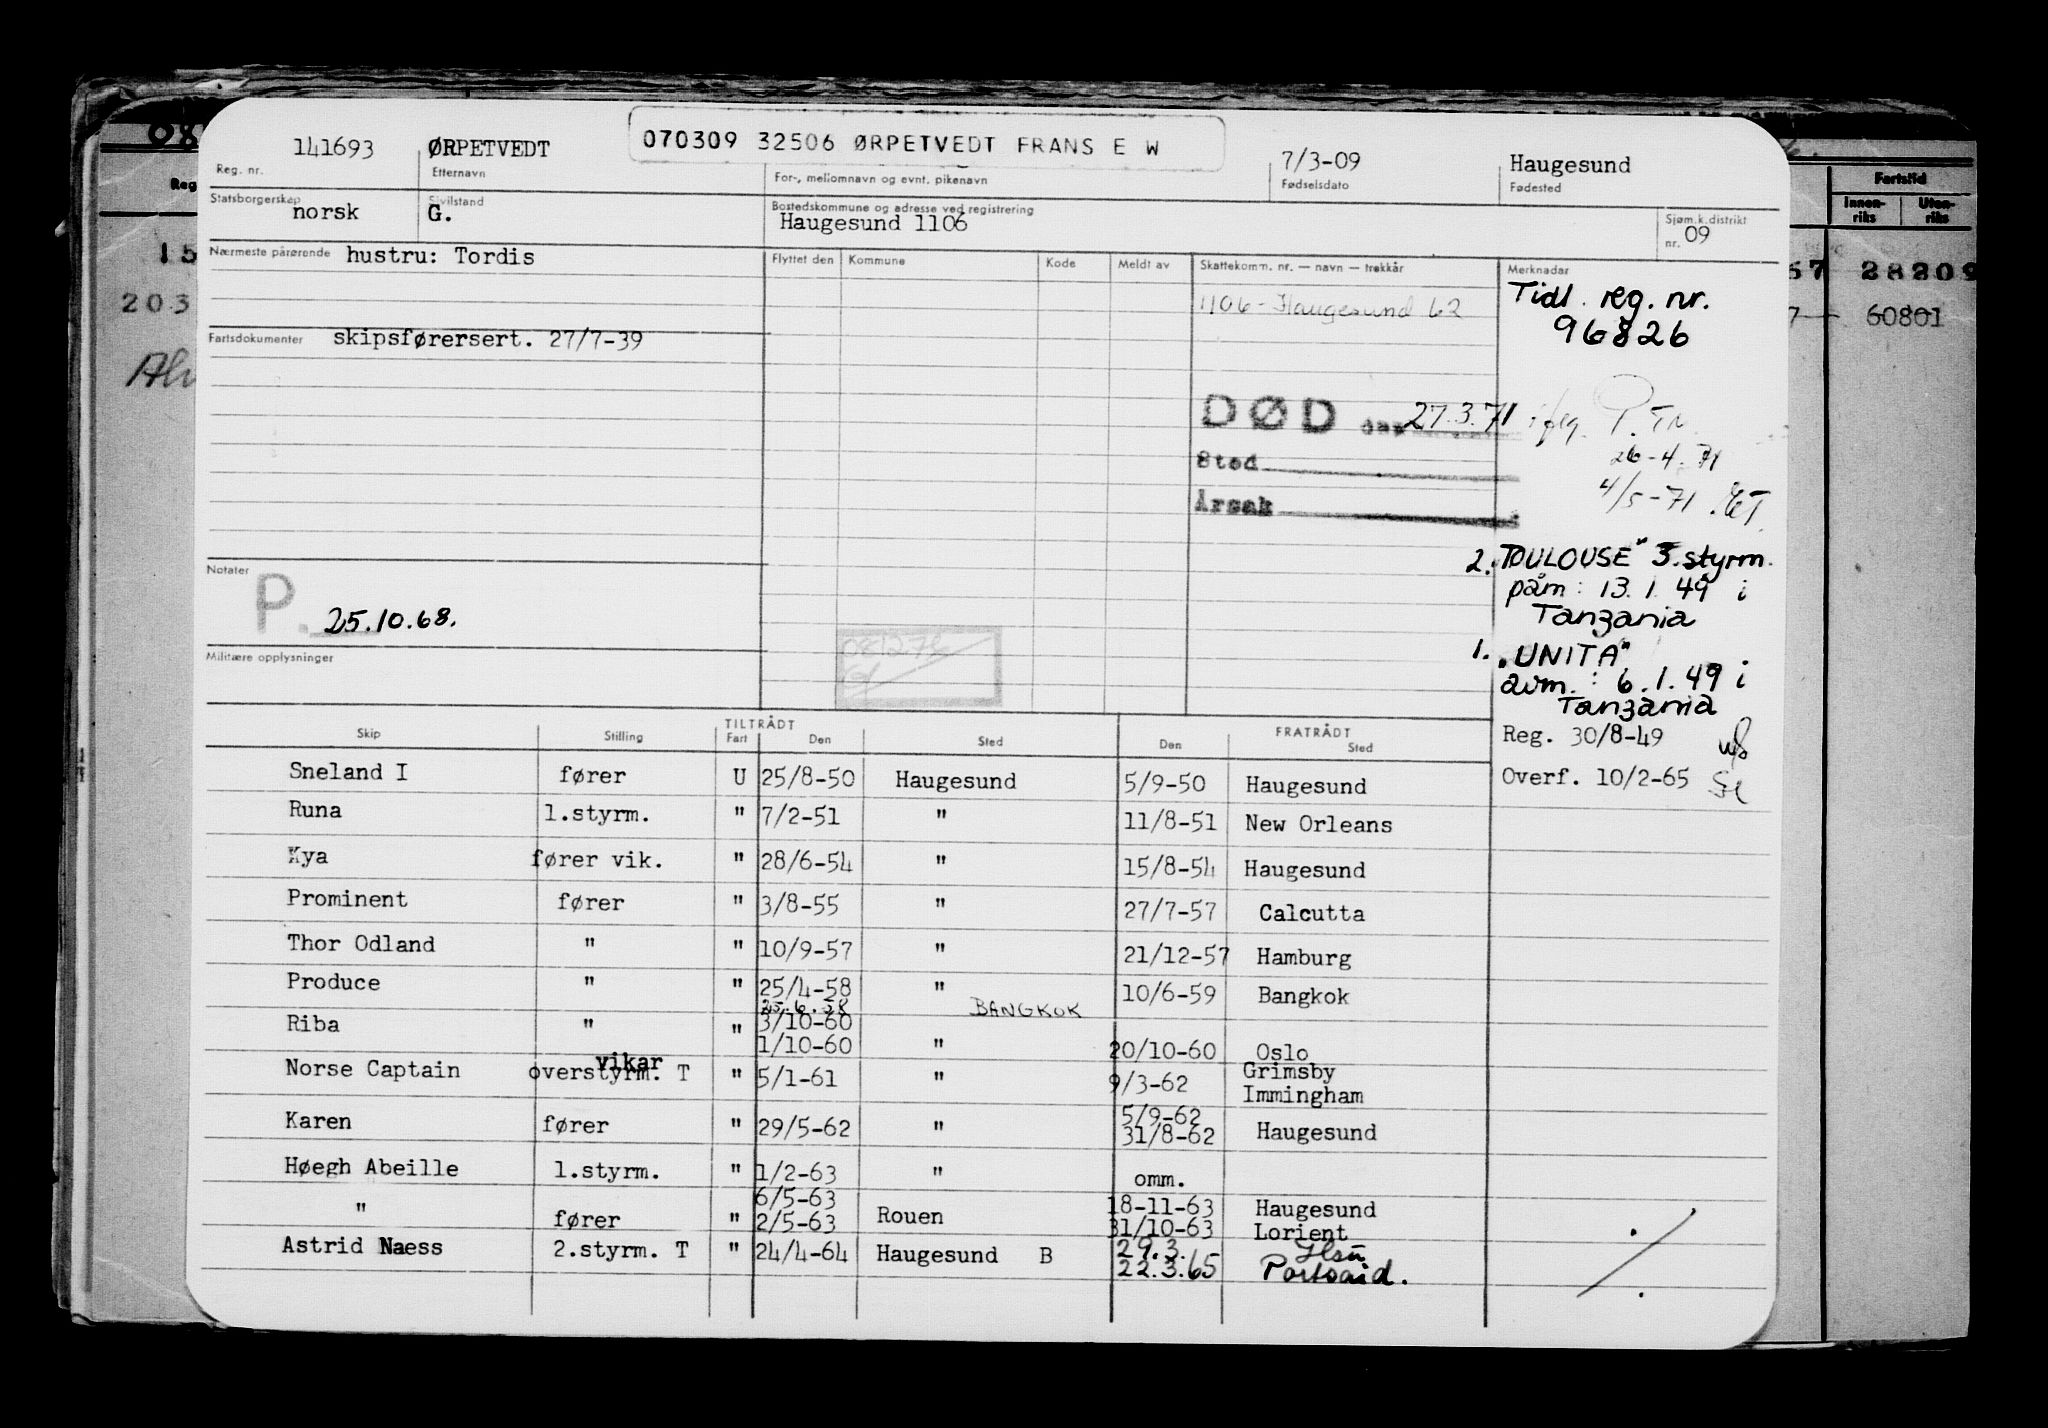 141693 ØRPETVEDT 070309 32506 ØRPETVEDT FRANS E W 7/3-09 Haugesund
Reg. nr. Etternavn For-, mellomnavn og evnt. pikenavn Fødselsdato Fødested
Statsborgerskap norsk Sivilstand G. Bostedskommune og adresse ved registrering Haugesund 1106 Sjøm.k.distrikt nr. 09
Nærmeste pårørende hustru: Tordis Flyttet den Kommune Kode Meldt av Skattekomm. nr. — navn — trekkår Merknader
1106 - Haugesund 62
Tidl. reg. nr.
96826
Fartsdokumenter skipsførersert. 27/7-39
DØD den 27.3.71 P.Tr.
26-4.71
Sted
4/5-71
Årsak
Notater
P. 25.10.68.
2. TOULOUSE" 3. styrm.
påm: 13.1.49 i
Tanzania
Militære opplysninger
1. "UNITA"
avm.: 6.1.49 i
Tanzania
Reg. 30/8-49
Overf. 10/2-65
TILTRÅDT FRATRÅDT
Skip Stilling Fart Den Sted Den Sted
Sneland I fører U 25/8-50 Haugesund 5/9-50 Haugesund
Runa 1.styrm. " 7/2-51 " 11/8-51 New Orleans
Kya fører vik. " 28/6-54 " 15/8-54 Haugesund
Prominent fører " 3/8-55 " 27/7-57 Calcutta
Thor Odland " " 10/9-57 " 21/12-57 Hamburg
Produce " " 25/4-58 " 10/6-59 Bangkok
25.6.58 BANGKOK
Riba " " 3/10-60
1/10-60 " 20/10-60 Oslo
vikar
Norse Captain overstyrm. T " 5/1-61 " 9/3-62 Grimsby
Immingham
5/9-62
Karen fører " 29/5-62 " 31/8-62 Haugesund
Høegh Abeille 1.styrm. " 1/2-63 " omm.
6/5-63 18-11-63 Haugesund
" fører " 2/5-63 Rouen 31/10-63 Lorient
Astrid Naess 2.styrm. T " 24/4-64 Haugesund B 29.3.
22.3.65 Portsaid.
Reg
Fartstid
Innen-riks Uten-riks
15
203
57 28209
7 60801